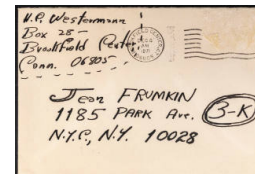 H.C. Westermann
Box 28
Brookfield Center
Conn. 06805
Jean FRUMKIN
1185 PARK Ave. 3-K
N.Y.C, N.Y. 10028